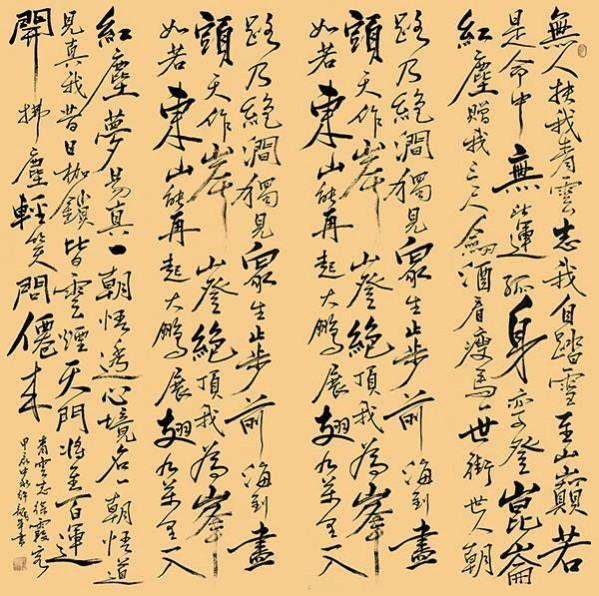 無人扶我青雲志我自踏雪至山巔若
是命中無此運孤身亦登崑崙
紅塵贈我三尺劍酒肴瘦馬一世街世人朝
路乃絕澗獨見眾生止步前海到盡
頭天作岸山登絕頂我為峯
如若東山能再起大鵬展翅九萬里一入
路乃絕澗獨見眾生止步前海到盡
頭天作岸山登絕頂我為峯
如若東山能再起大鵬展翅九萬里一入
紅塵夢易真一朝悟透心境名一朝悟道
見真我昔日枷鎖皆雲煙天門將至百運
開拂塵輕笑問僊來
青雲志徐霞客
甲辰中秋許龍年書